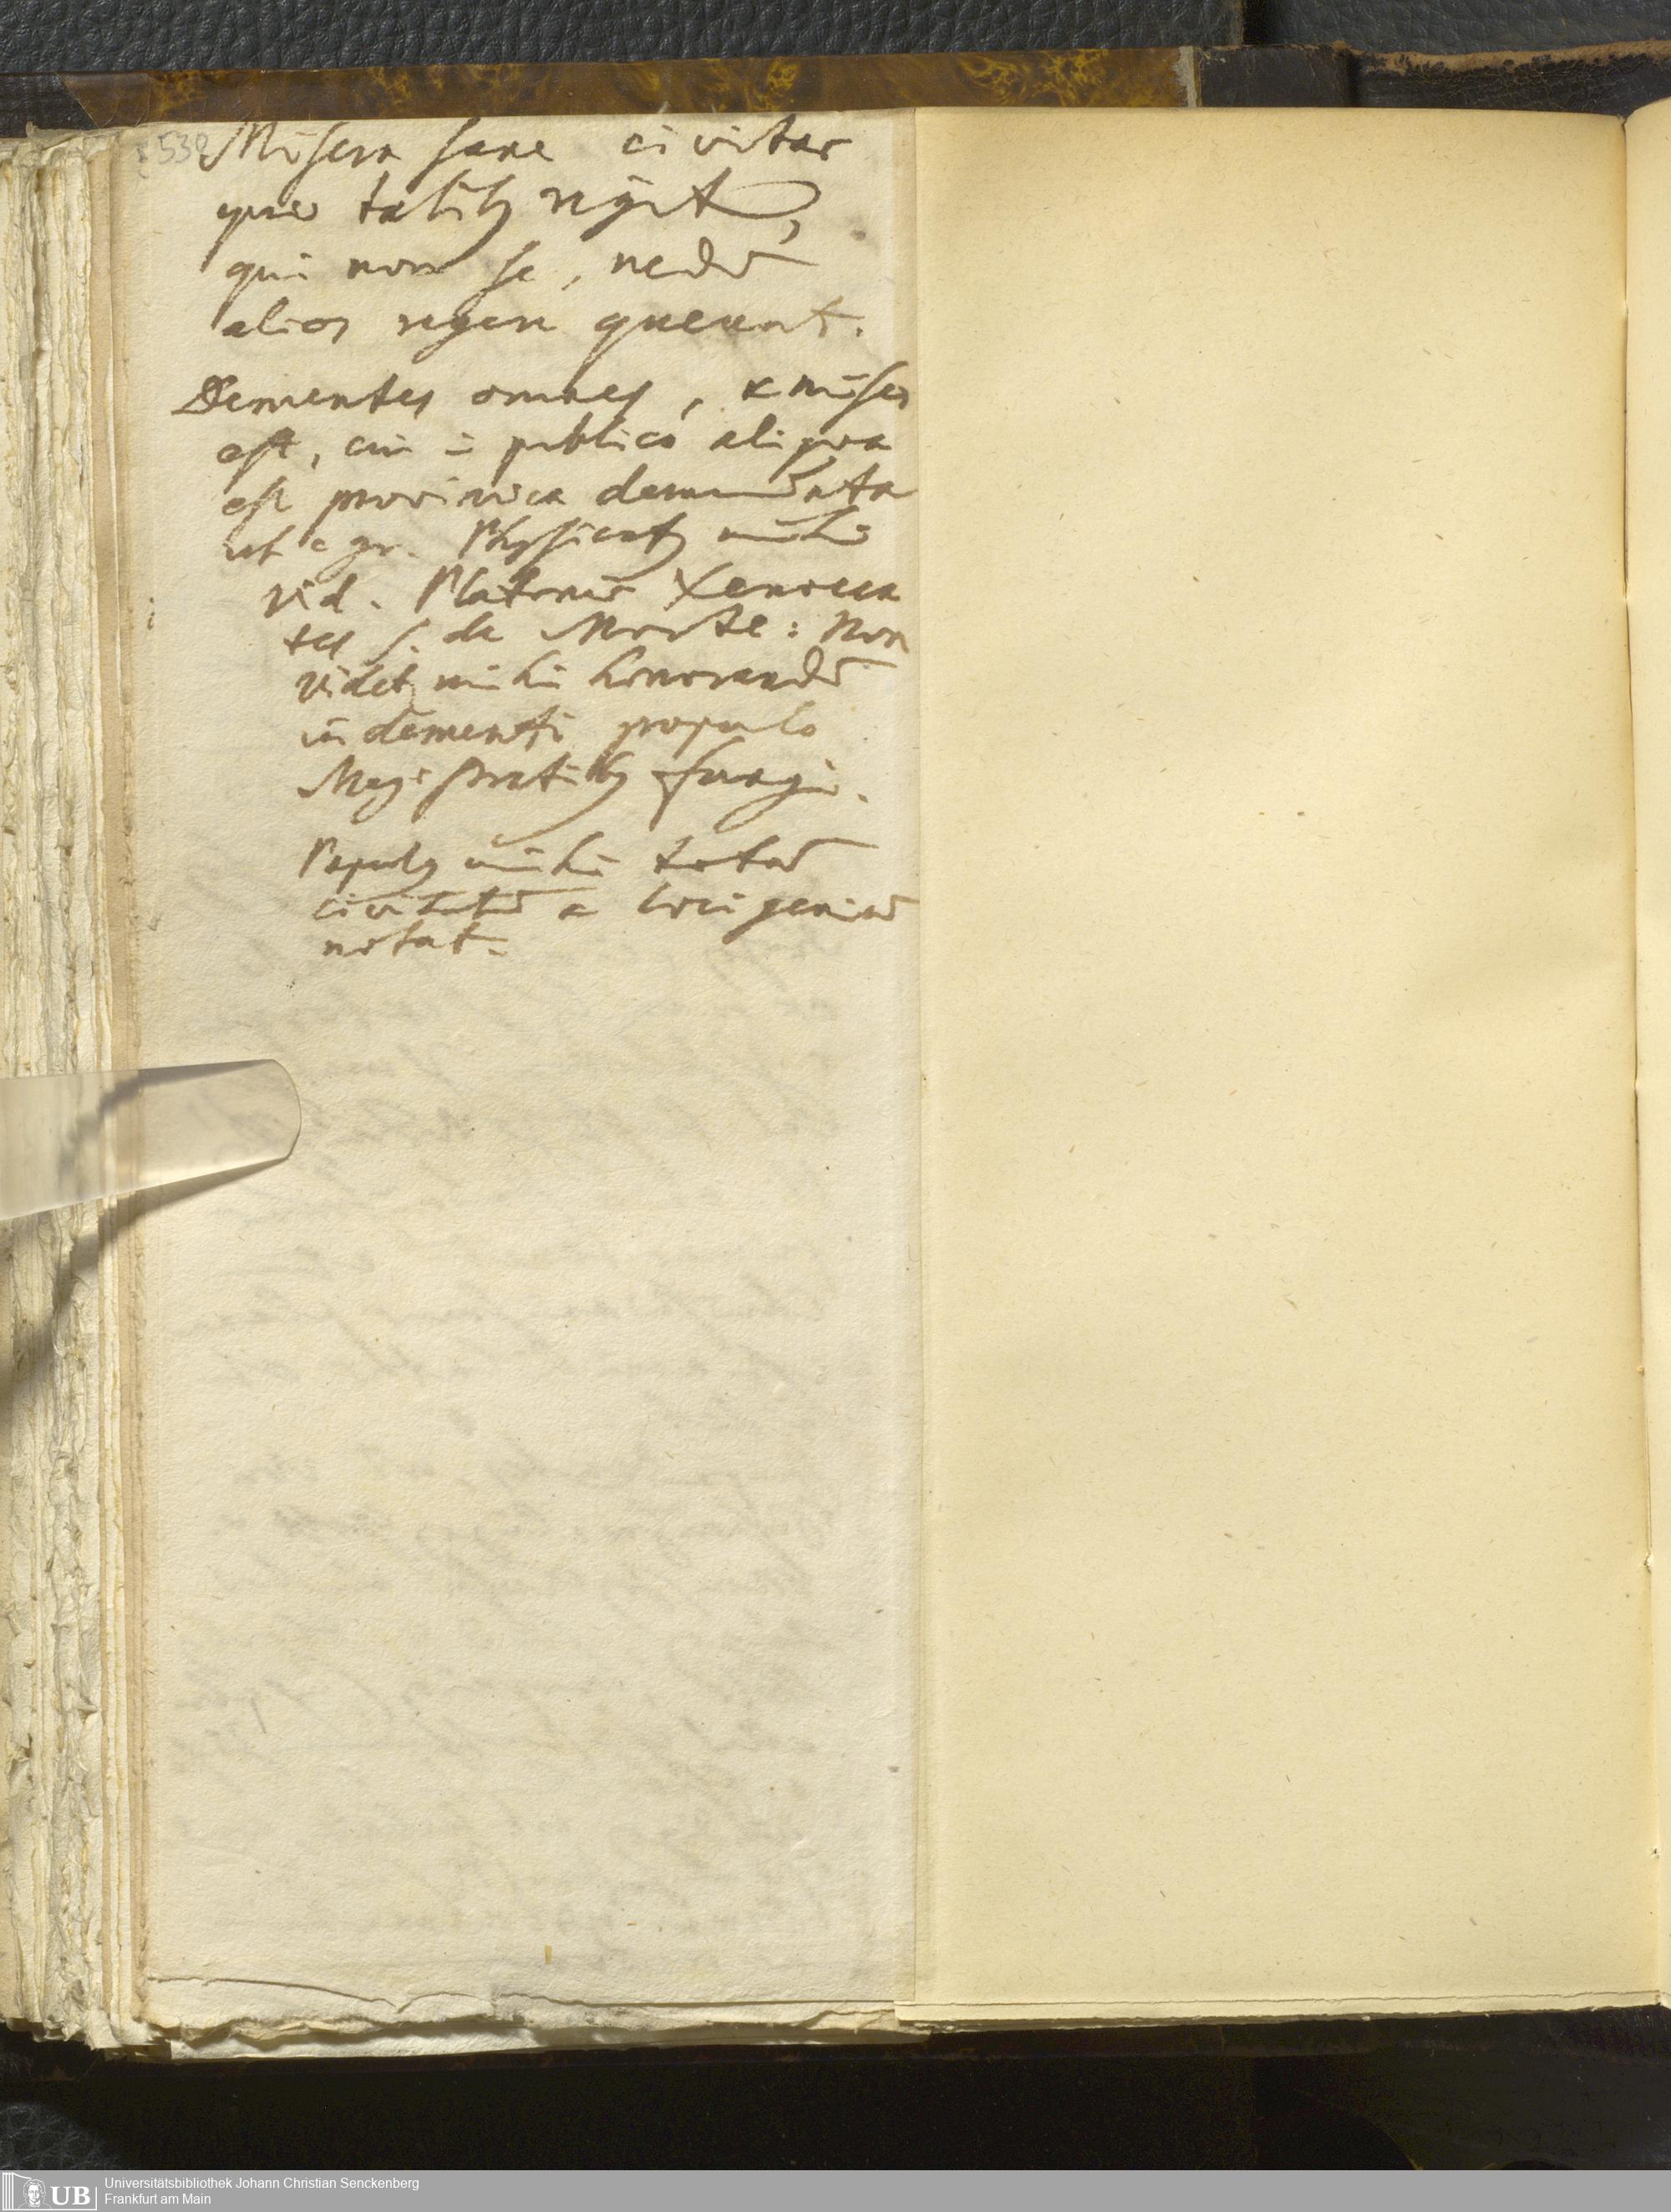 538
Misera sane civitas
quae talib9 regit,
qui non se, nedū
alios regere queunt.
Dementes omnes, & miser
est, cui ī publico aliqua
est provincia demandata
ut e gr. Physicat9 mihi
vid. Platonis Xenocra
tes s. de Morte: Non
videt mihi honorandū
in dementi populo
Magistratib9 fungi.
Popul9 mihi totā
civitatē & loci geniū
notat.
UB
Universitätsbibliothek Johann Christian Senckenberg
Frankfurt am Main